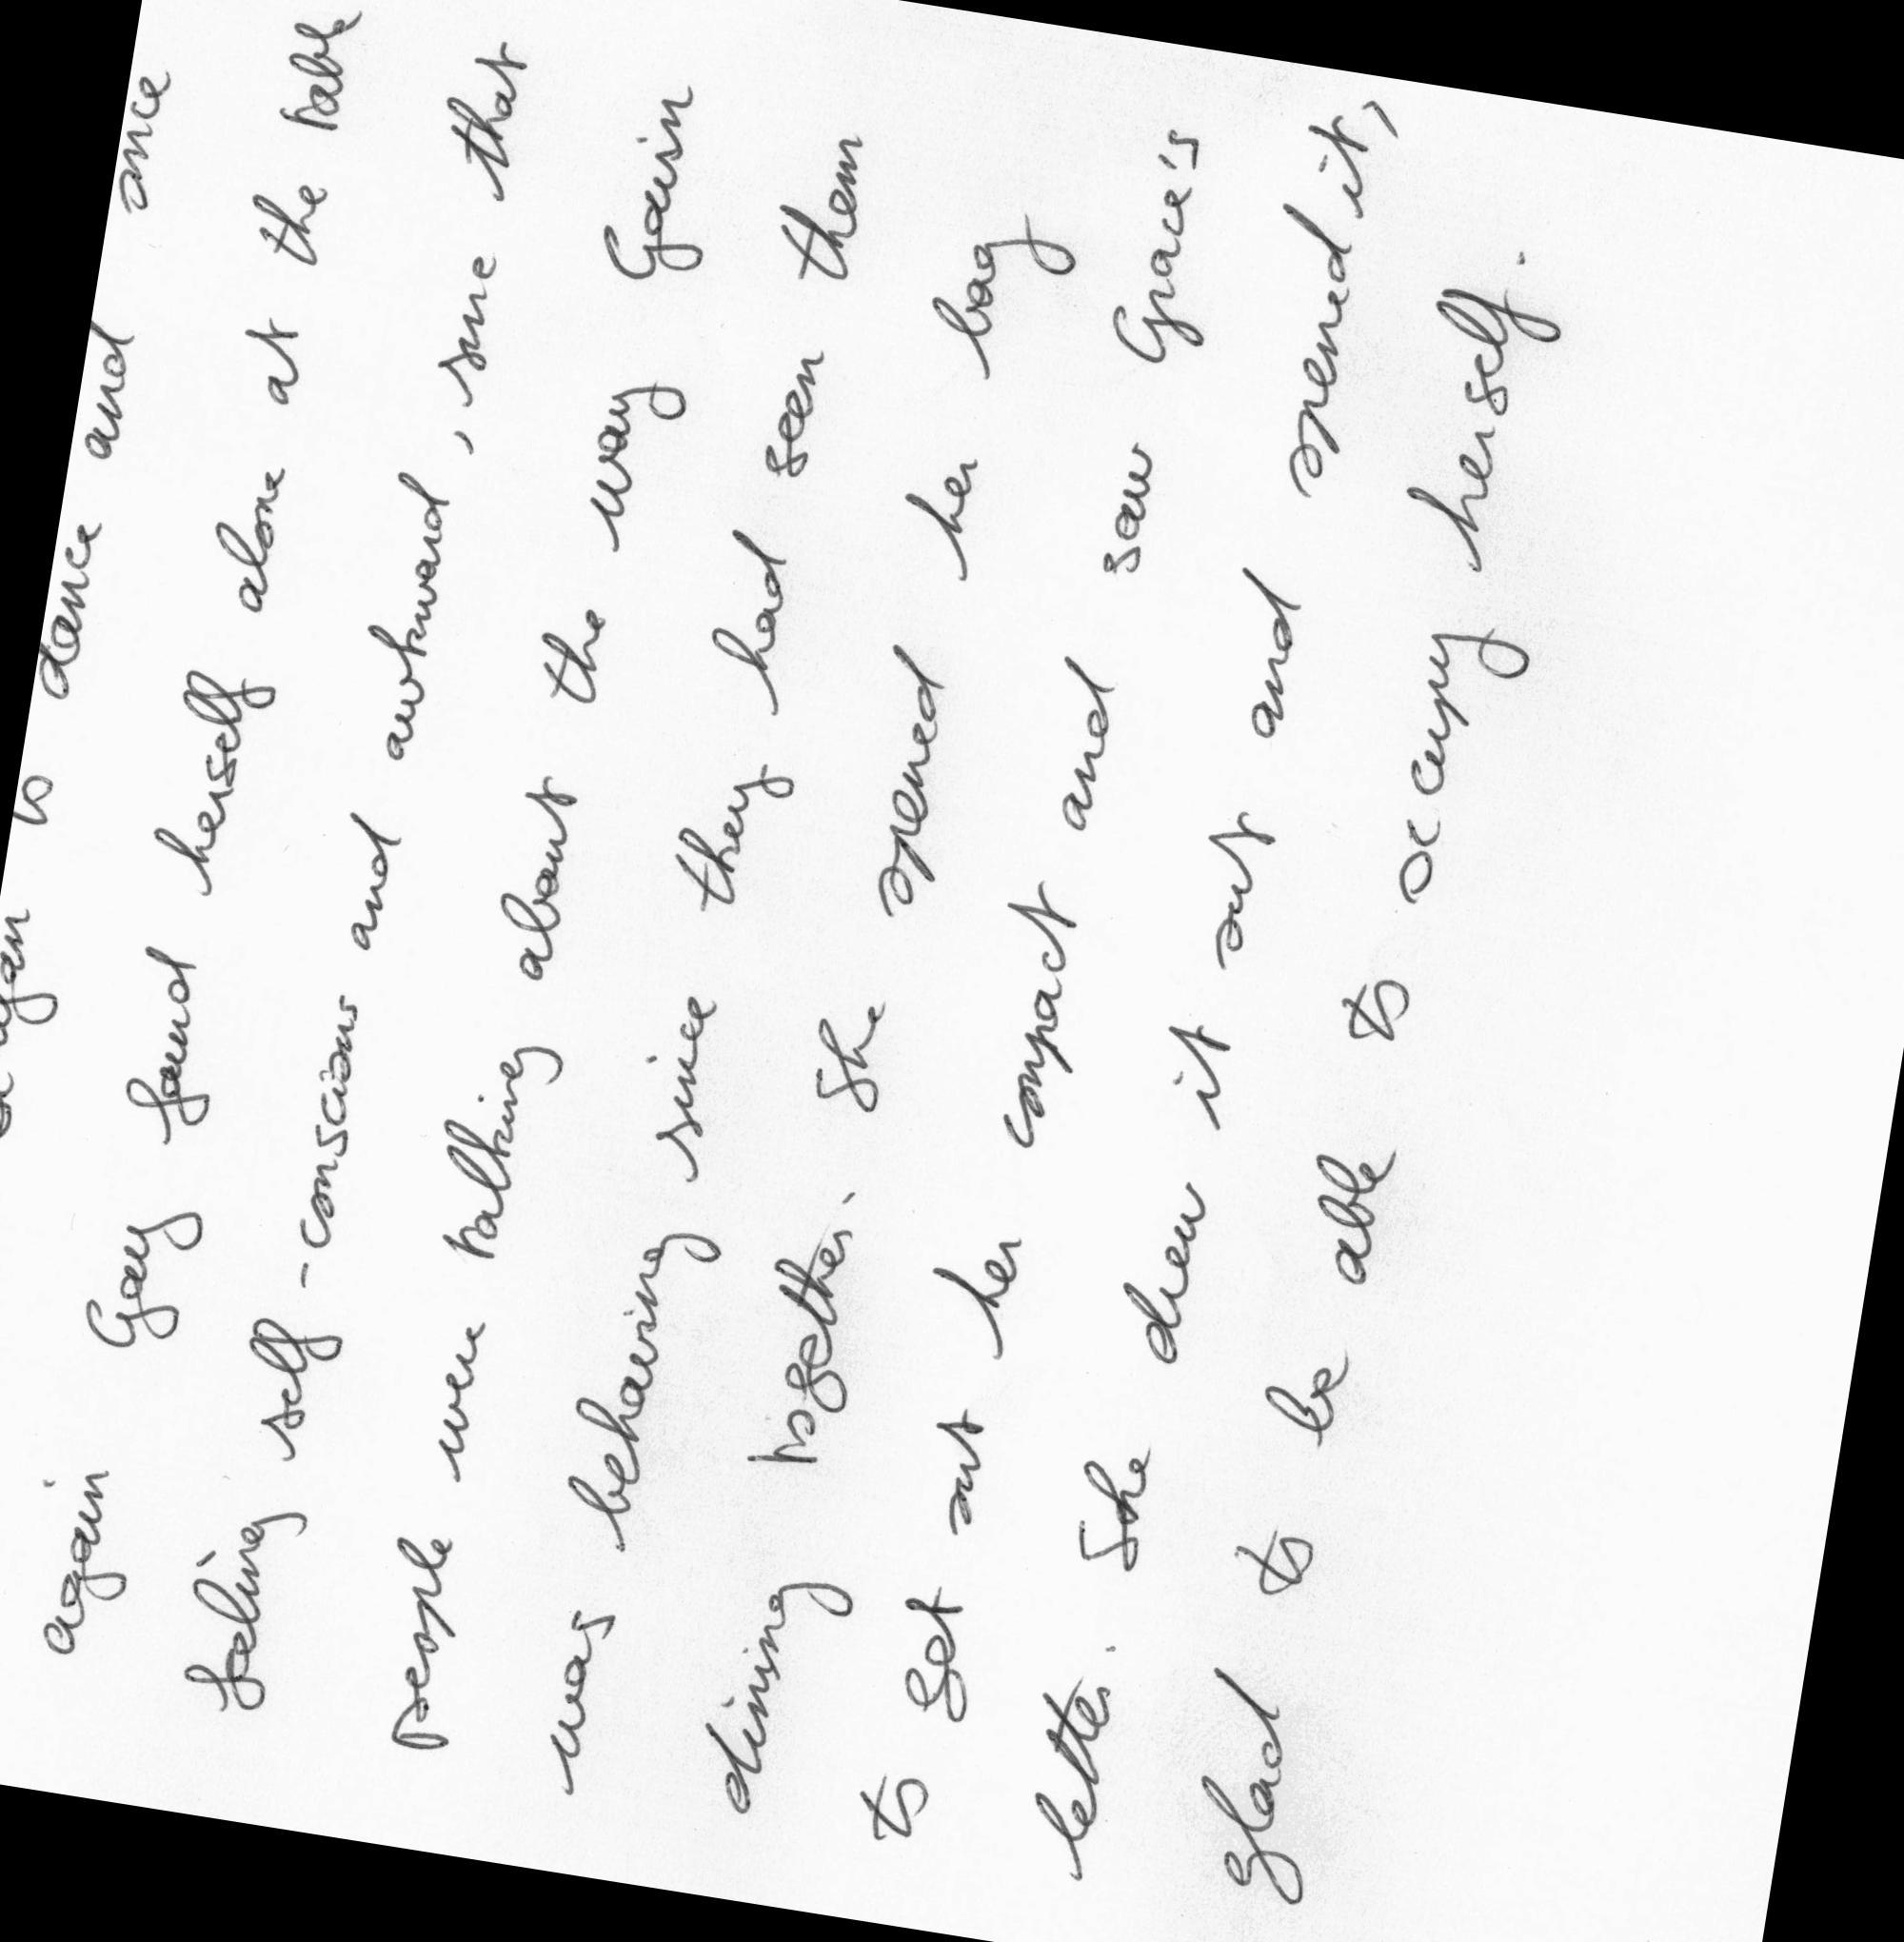 to dance and once
again Gay found herself alone at the table
feeling self-conscious and awkward, sure that
people were talking about the way Gavin
was behaving since they had seen them
dining together. She opened her bag
to get out her compact and saw Grace's
letter. She drew it out and opened it,
glad to be able to occupy herself.